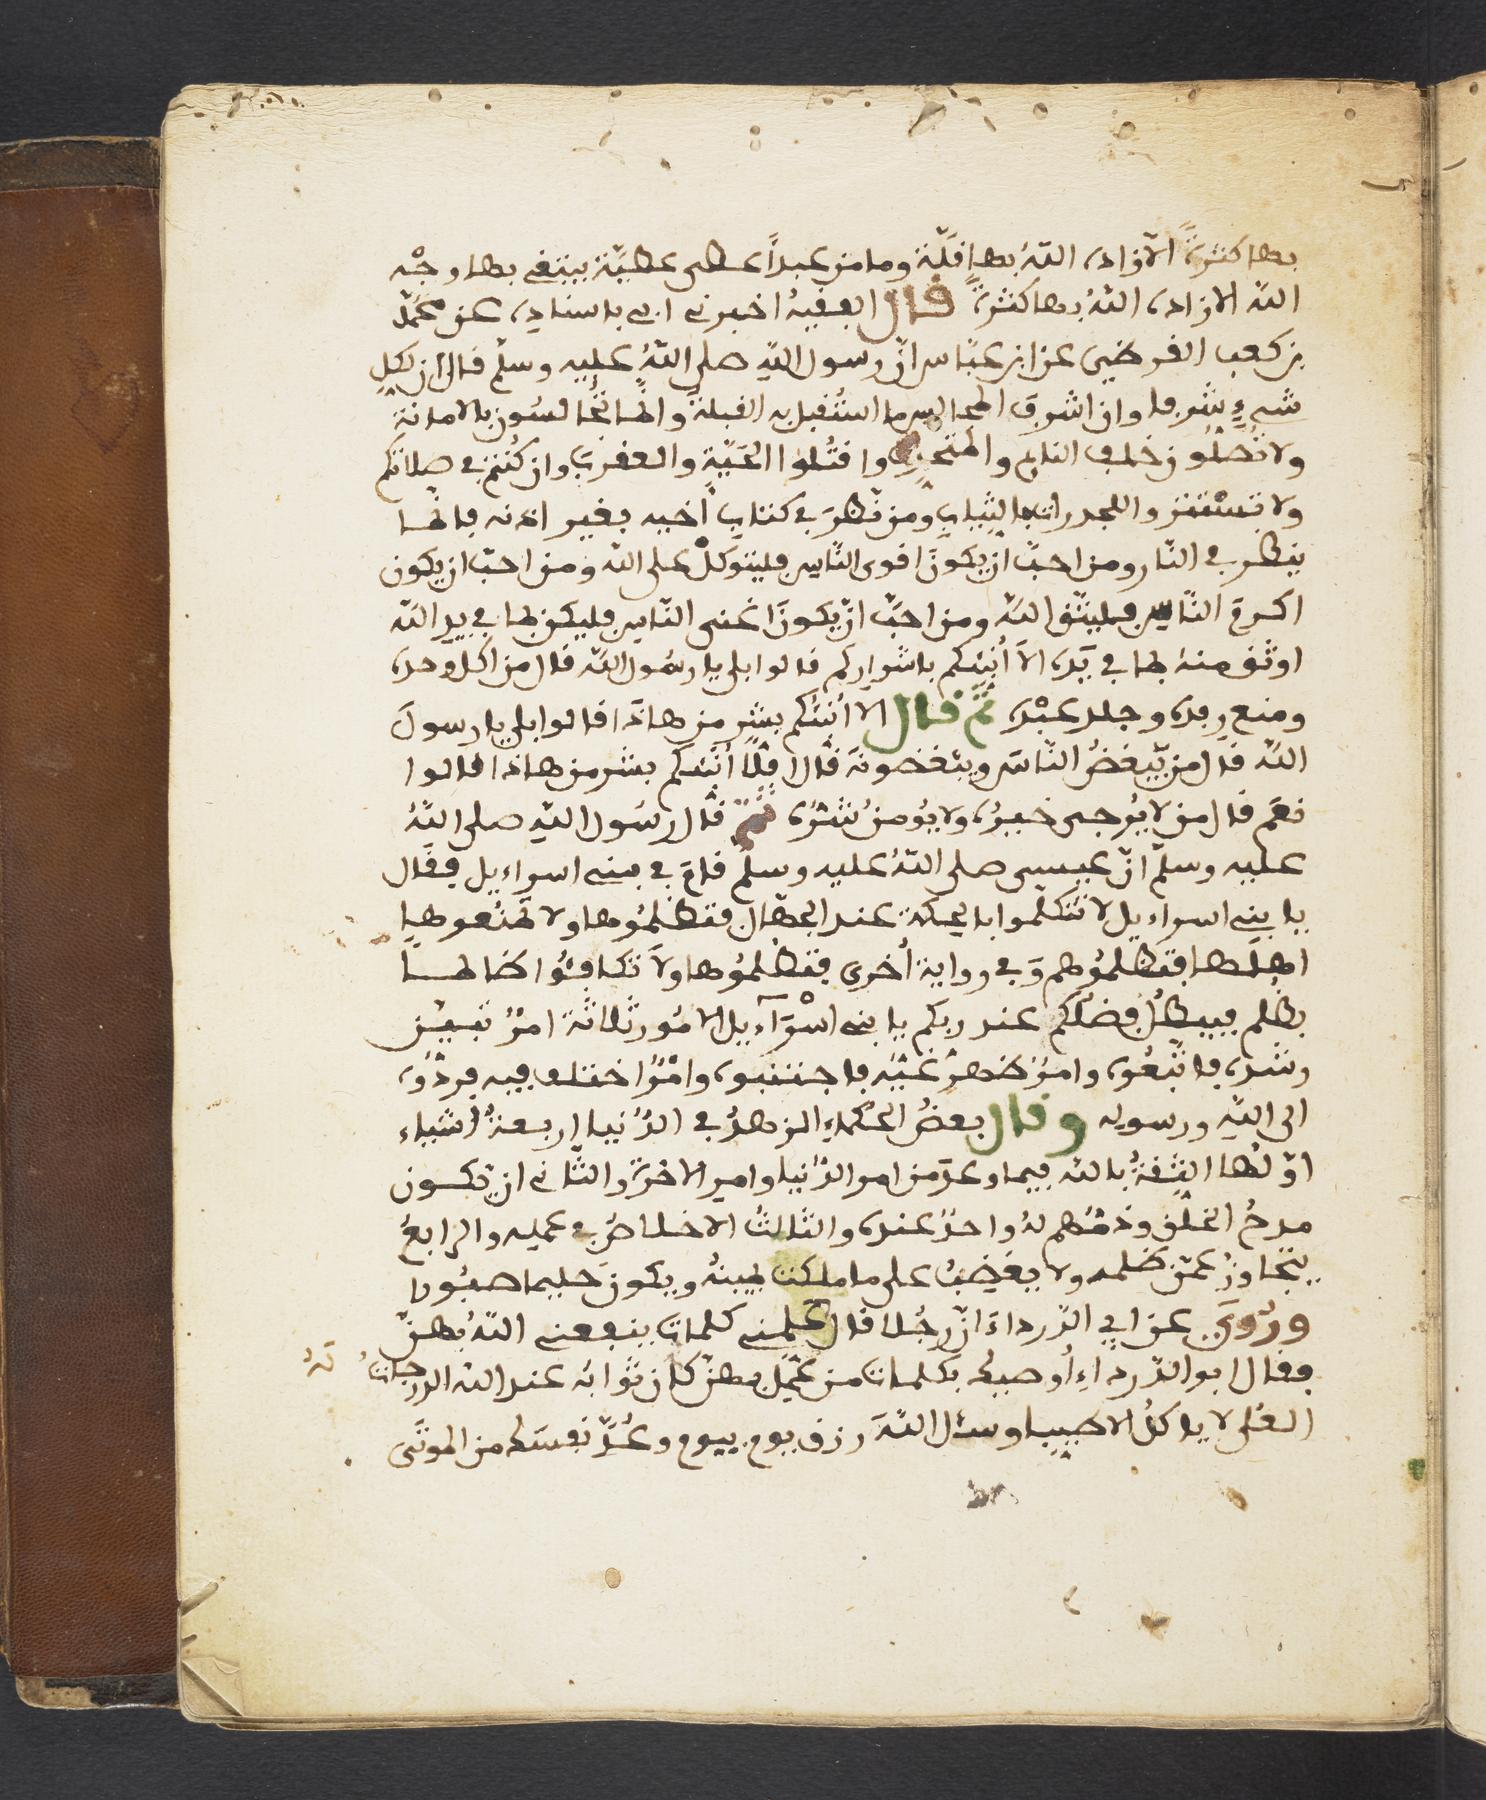 بها كثرة الا زاده الله بها قلة وما من عبدا عطى عطية يبتغي بها وجه
الله الا زاده الله بها كثرة قال الفقيه اخبرني ابي باسناده عن محمد
بن كعب القرضي عن ابن عباس ان رسول الله صلى الله عليه وسلم قال ان لكل
شيء شرفا وان اشرف المجالس ما استقبل به القبلة وانما تجالسون بالامانة
ولا تصلون خلف النايم والمتحدث واقتلوا الحية والعقرب وان كنتم في صلاتكم
ولا تستتروا الجدرات بالثياب ومن نظر في كتاب أخيه بغير اذنه فانما
ينظر في النار ومن احب ان يكون اقوى الناس فليتوكل على الله ومن احب ان يكون
اكرم الناس فليتق الله ومن احب ان يكون اغنى الناس فليكن بما في يد الله
اوثق منه بما في يده الا أنبئكم باشراركم قالوا بلى يا رسول الله قال من اكل وحده
ومنع رفده وجلد عبده ثم قال الا أنبئكم بشر من هاذا قالوا بلى يا رسول
الله قال من يبغض الناس ويبغضونه قال افلا أنبئكم بشر من هاذا قالوا
نعم قال من لا يرجى خيره ولا يومن شره ثم قال رسول الله صلى الله
عليه وسلم ان عيسى صلى الله عليه وسلم قام في بني اسراءيل فقال
يا بني اسراءيل لا تتكلموا بالحكمة عند الجهال فتظلموها ولا تمنعوها
اهلها فتظلموهم وفي رواية أخرى فتظلموها ولا تكافئوا ظالما
بظلم فيبطل فضلكم عند ربكم يا بني اسرآءيل الامور ثلاثة امر تبين
رشده فاتبعوه وامر ظهر غيه فاجتنبوه وامر اختلف فيه فردوه
الى الله ورسوله وقال بعض الحكماء الزهد في الدنيا اربعة أشياء
اولها الثقة بالله فيما وعد من امر الدنيا وامر الاخرة والثاني ان يكون
مدح الخلق وذمهم له واحد عنده والثالث الاخلاص في عمله والرابع
يتجاوز عمن ظلمه ولا يغضب على ما ملكت يمينه ويكون حليما صبورا
وروي عن ابي الدرداء ان رجلا قال له علمني كلمات ينفعني الله بهن
فقال ابو الدرداء أوصيك بكلمات من عمل بهن كان ثوابه عند الله الدرجات
العلى لا ياكل الا طيبا وسئل الله رزق يوم بيوم وعد نفسك من الموتى